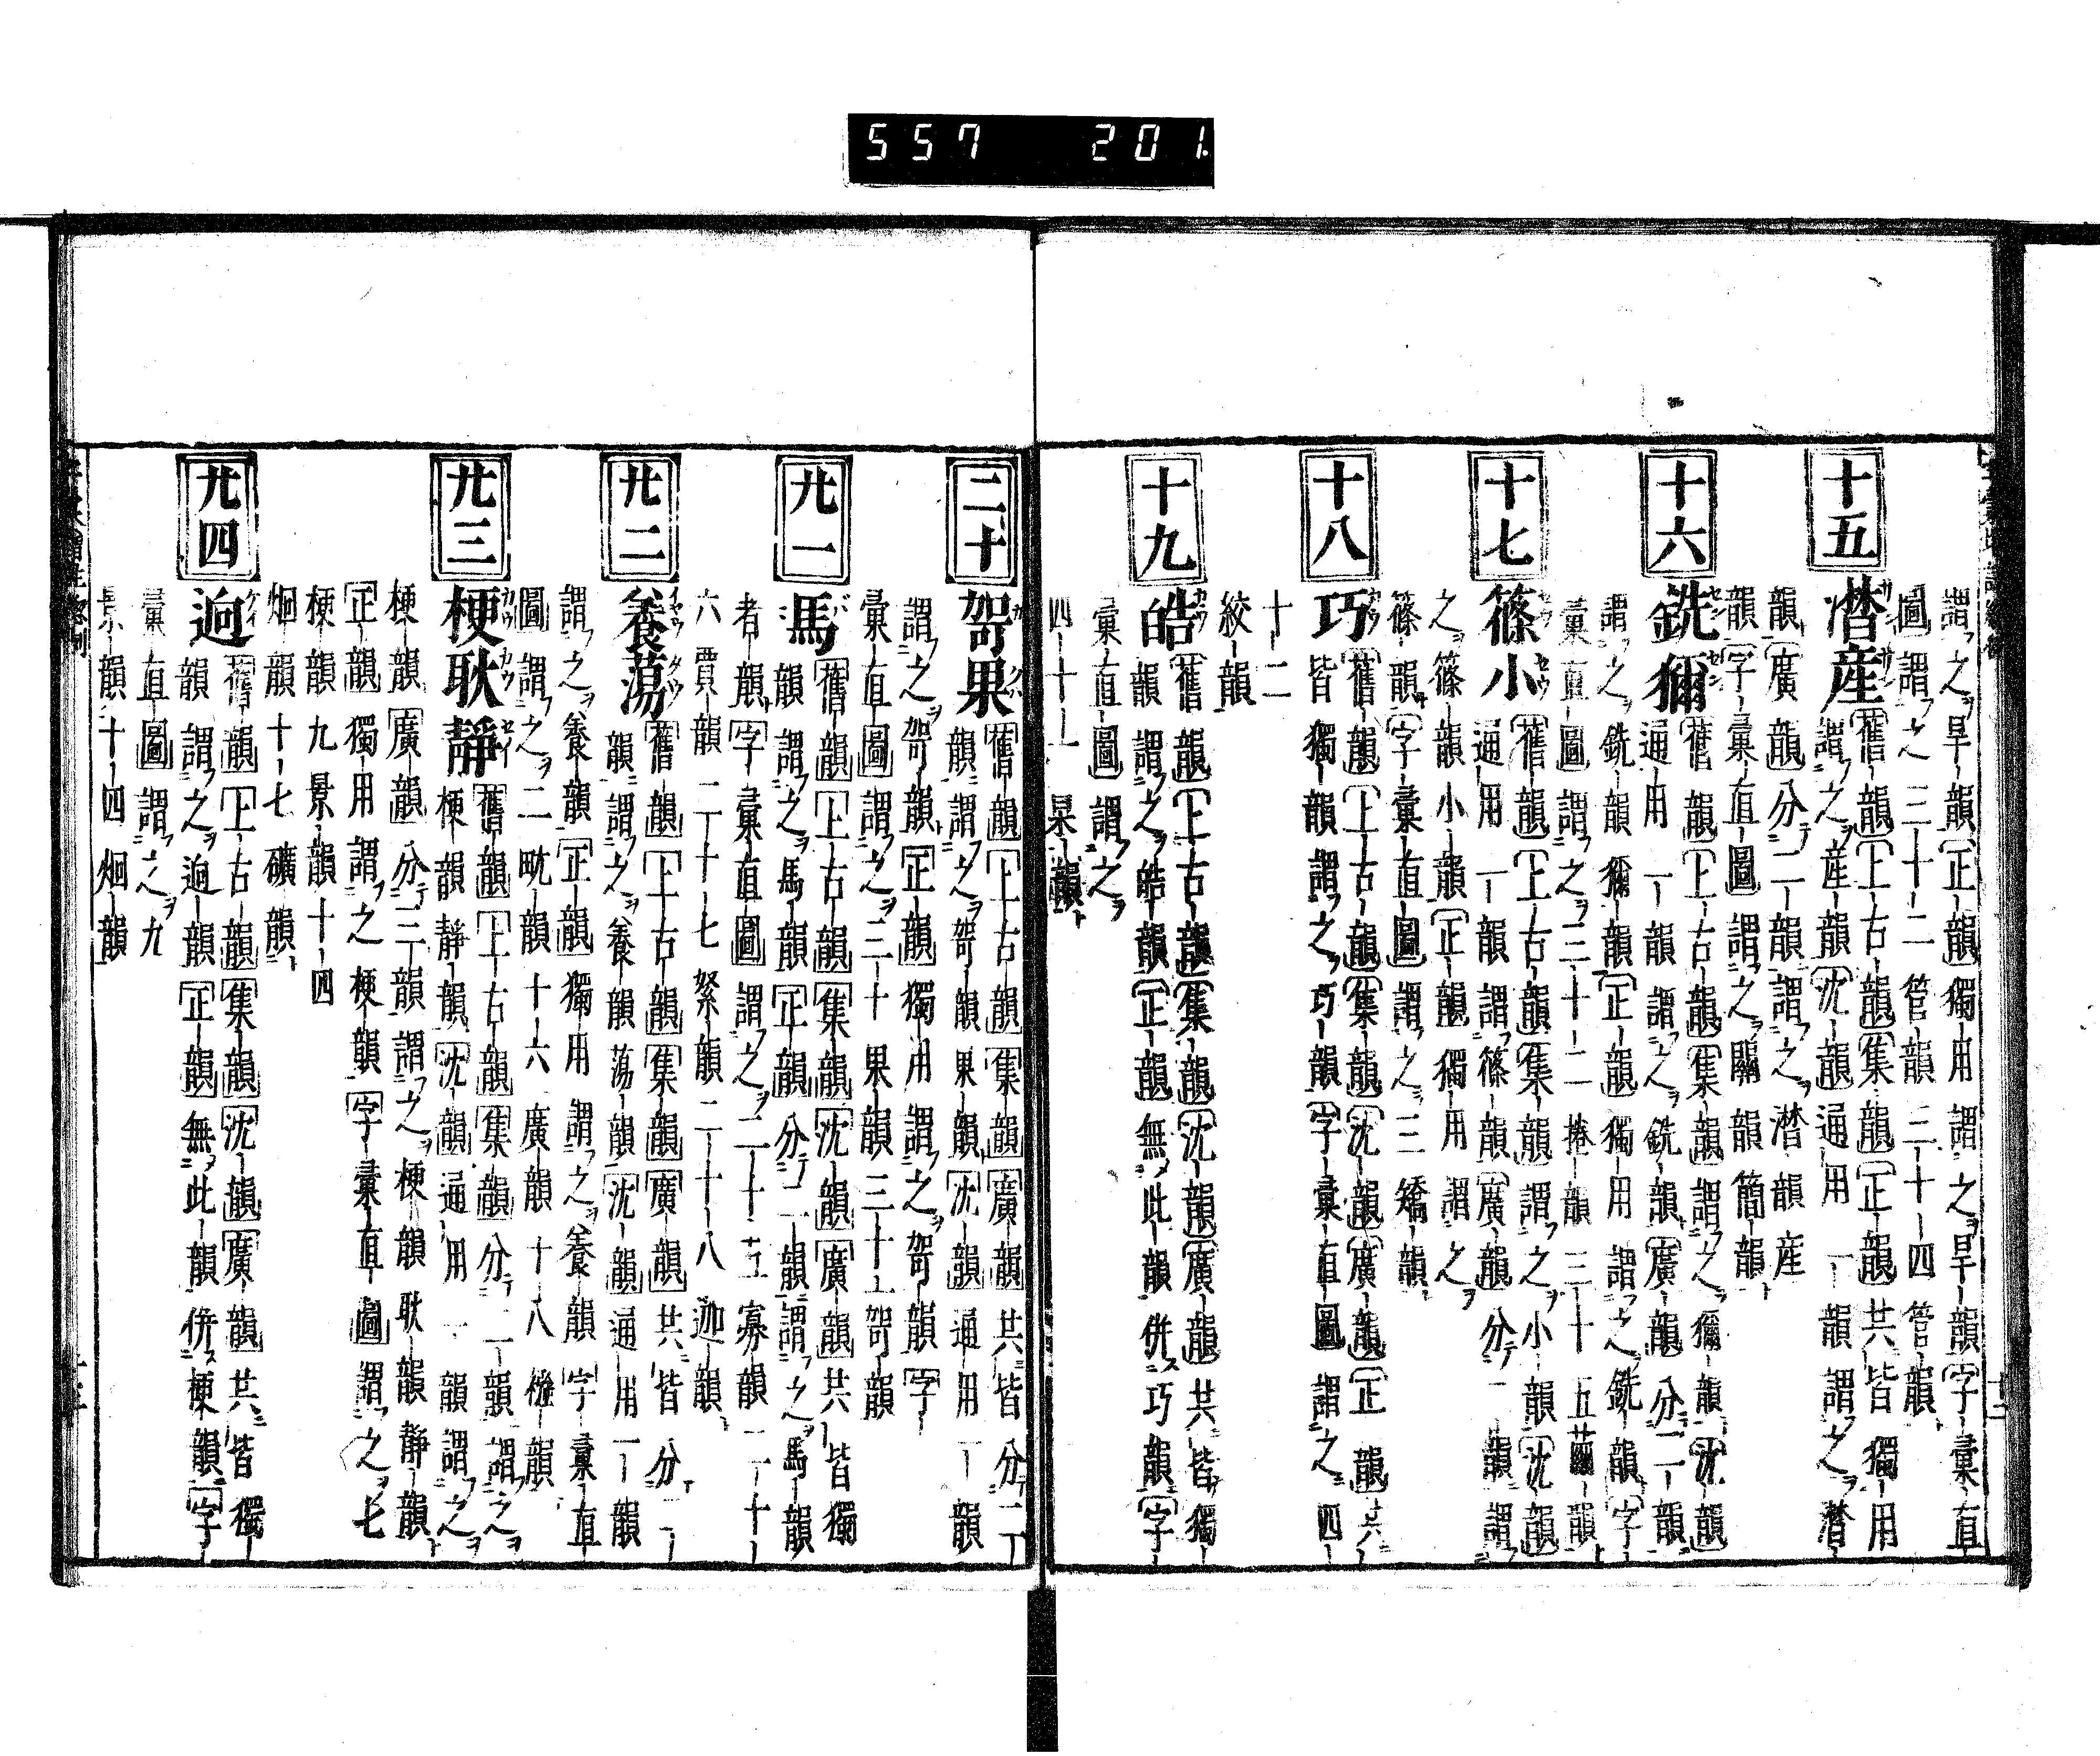 557 201
謂之旱韻正韻獨用謂之旱韻字彙直
圖謂之三十二管韻三十四管韻
十五
潸産舊韻上古韻集韻正韻共皆獨用
謂之産韻沈韻通用一韻謂之潸
韻廣韻分二韻謂之潸韻産
韻字彙直圖謂之關韻簡韻
十六
銑獮舊韻上古韻集韻謂之獮韻沈韻
通用一韻謂之銑韻廣韻分二韻
謂之銑韻獮韻正韻獨用謂之銑韻字
彙直圖謂之三十二捲韻三十五繭韻
十七
篠小舊韻上古韻集韻謂之小韻沈韻
通用一韻謂篠韻廣韻分二韻謂
之篠韻小韻正韻獨用謂之
篠韻字彙直圖謂之三矯韻
十八
巧舊韻上古韻集韻沈韻廣韻正韻共
皆獨韻謂之巧韻字彙直圖謂之四
十二
絞韻
十九
皓舊韻上古韻集韻沈韻廣韻共皆獨
韻謂之皓韻正韻無此韻併巧韻字
彙直圖謂之
四十一杲韻
二十
哿果舊韻上古韻集韻廣韻共皆分二
韻謂之哿韻果韻沈韻通用一韻
謂之哿韻正韻獨用謂之哿韻字
彙直圖謂之三十果韻三十一哿韻
廿一
馬舊韻上古韻集韻沈韻廣韻共皆獨
韻謂之馬韻正韻分二韻謂之馬韻
者韻字彙直圖謂之二十五寡韻二十
六賈韻二十七䋈韻二十八迦韻
廿二
養蕩舊韻上古韻集韻廣韻共皆分二
韻謂之養韻蕩韻沈韻通用一韻
謂之養韻正韻獨用謂之養韻字彙直
圖謂之二㽘韻十六廣韻十八㒇韻
廿三
梗耿靜舊韻上古韻集韻分二韻謂之
梗韻靜韻沈韻通用一韻謂之
梗韻廣韻分三韻謂之梗韻耿韻靜韻
正韻獨用謂之梗韻字彙直圖謂之七
梗韻九景韻十四
烱韻十七礦韻
廿四
迥舊韻上古韻集韻沈韻廣韻共皆獨
韻謂之迥韻正韻無此韻併梗韻字
彙直圖謂之九
景韻十四烱韻